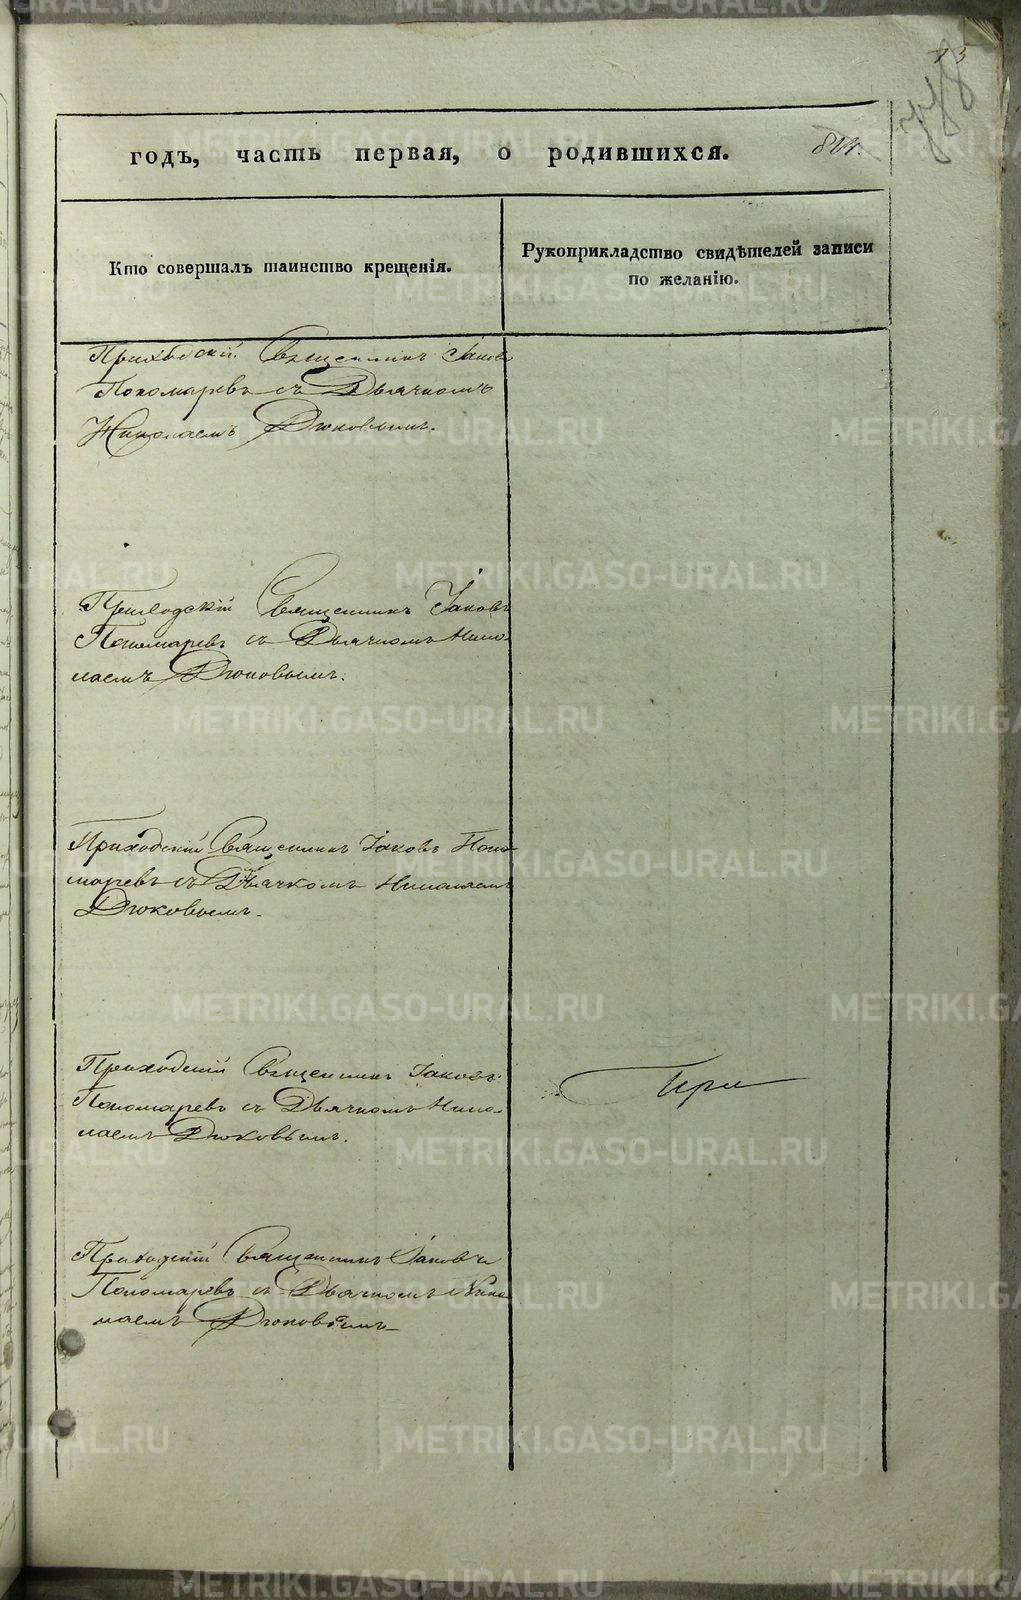 METRIKI.GASO-URAL.RU
13
годъ, часть первая, о родившихся.
Кто совершалъ таинство крещенія.
Рукоприкладство свидѣтелей записи
по желанію.
Приходскій Священникъ Іаковъ
Пономаревъ съ Дьячкомъ
Николаемъ Дюковымъ.
Приходскій Священникъ Іаковъ
Пономаревъ съ Дьячкомъ Нико-
лаемъ Дюковымъ.
Приходскій Священникъ Іаковъ Поно-
маревъ съ Дьячкомъ Николаемъ
Дюковымъ.
Приходскій Священникъ Іаковъ
Пономаревъ съ Дьячкомъ Нико-
лаемъ Дюковымъ.
При
Приходскій Священникъ Іаковъ
Пономаревъ съ Дьячкомъ Нико-
лаемъ Дюковымъ